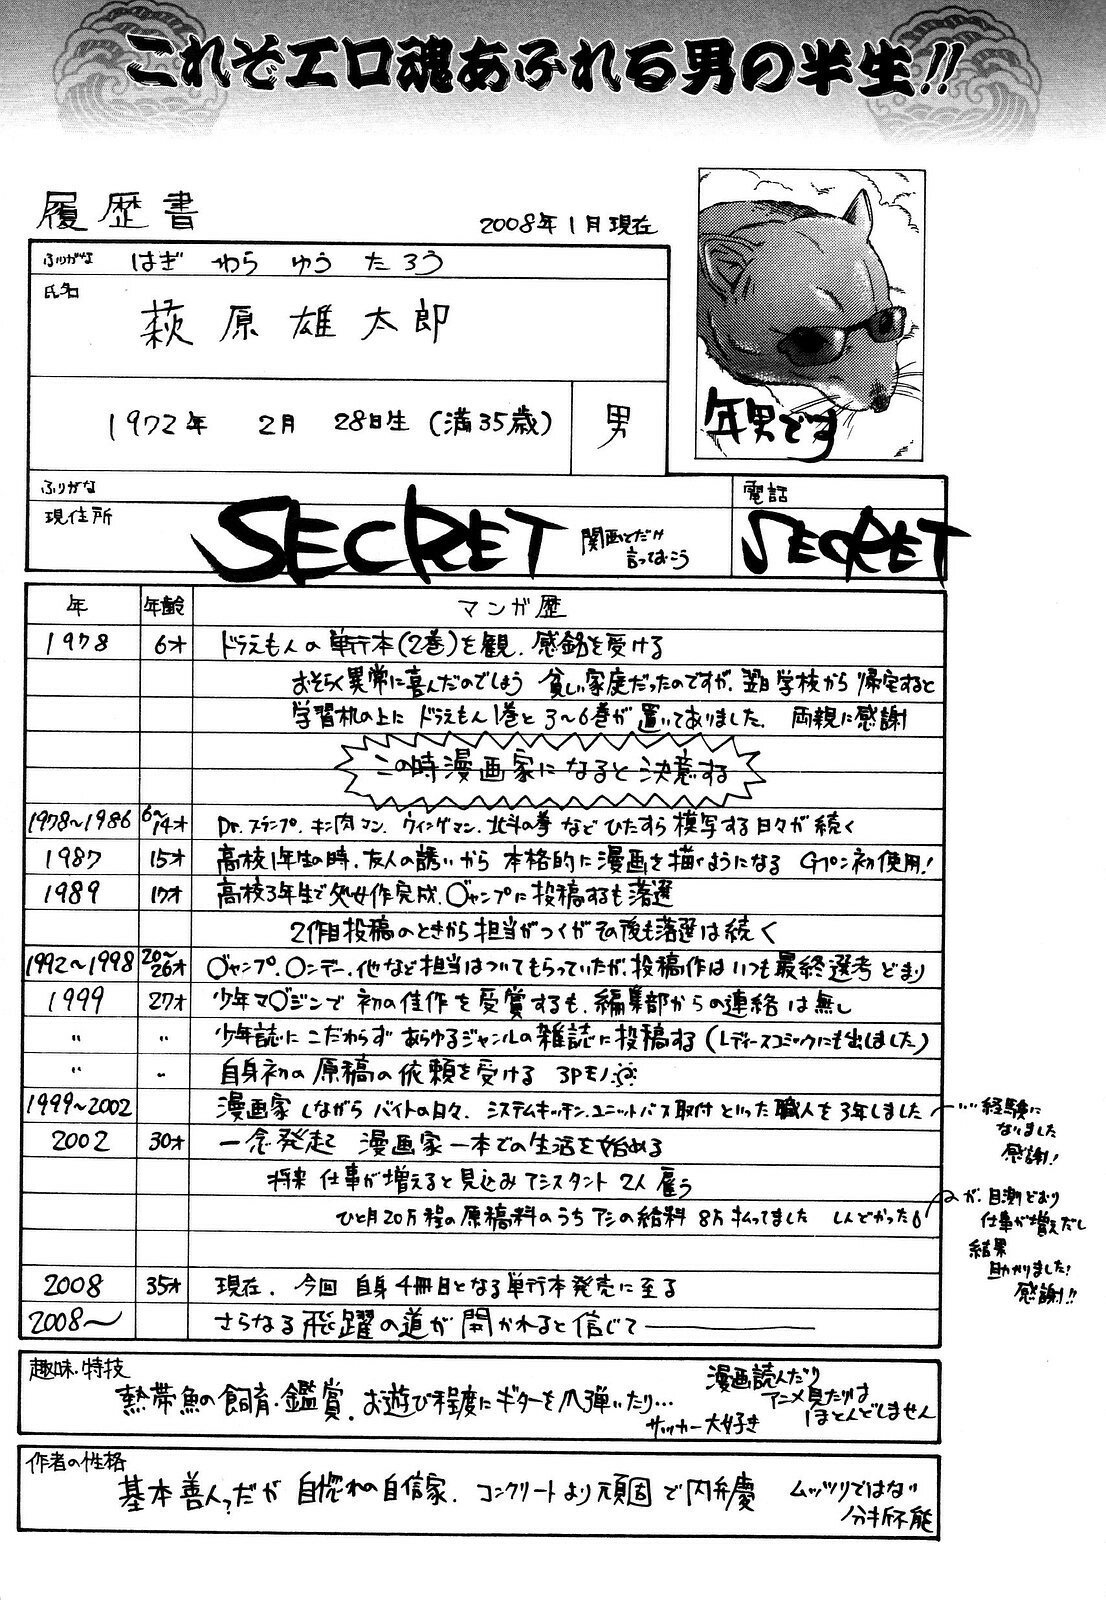 これぞエロ魂あふれる男の半生!!
履歴書
2008年1月現在
ふりがな はぎ わら ゆう た ろう
氏名
萩原雄太郎
1972年 2月 28日生 (満35歳)
男
年男です
ふりがな
現住所
SECRET
関西とだけ
言っておこう
電話
SECRET
年 年齢 マンガ歴
1978 6才 ドラえもんの単行本(2巻)を観、感銘を受ける
おそらく異常に喜んだのでしょう 貧しい家庭だったのですが、翌日学校から帰宅すると
学習机の上にドラえもん1巻と3〜6巻が置いてありました。 両親に感謝
この時漫画家になると決意する
1978〜1986 6〜14才 Dr.スランプ、キン肉マン、ウイングマン、北斗の拳などひたすら模写する日々が続く
1987 15才 高校1年生の時、友人の誘いから本格的に漫画を描くようになる Gペン初使用!
1989 17才 高校3年生で処女作完成、○ャンプに投稿するも落選
2作目投稿のときから担当がつくがその後も落選は続く
1992〜1998 20〜26才 ○ャンプ、○ンデー、他など担当はついてもらっていたが、投稿作はいつも最終選考どまり
1999 27才 少年マ○ジンで初の佳作を受賞するも、編集部からの連絡は無し
〃 〃 少年誌にこだわらずあらゆるジャンルの雑誌に投稿する(レディースコミックにも出しました)
〃 〃 自身初の原稿の依頼を受ける 3Pモノ
1999〜2002 漫画家しながらバイトの日々、システムキッチン、ユニットバス取付といった職人を3年しました
…経験に
なりました
感謝!
2002 30才 一念発起 漫画家一本での生活を始める
将来仕事が増えると見込みアシスタント2人雇う
ひと月20万程の原稿料のうちアシの給料8万払ってました しんどかった
が、目測どおり
仕事が増えだし
結果
助かりました!
感謝!!
2008 35才 現在、今回自身4冊目となる単行本発売に至る
2008〜 さらなる飛躍の道が開かれると信じて――
趣味・特技
熱帯魚の飼育・鑑賞、お遊び程度にギターを爪弾いたり…
サッカー大好き
漫画読んだり
アニメ見たりは
ほとんどしません
作者の性格
基本善人っだが自惚れの自信家、コンクリートより頑固で内弁慶
ムッツリではない
分析不能